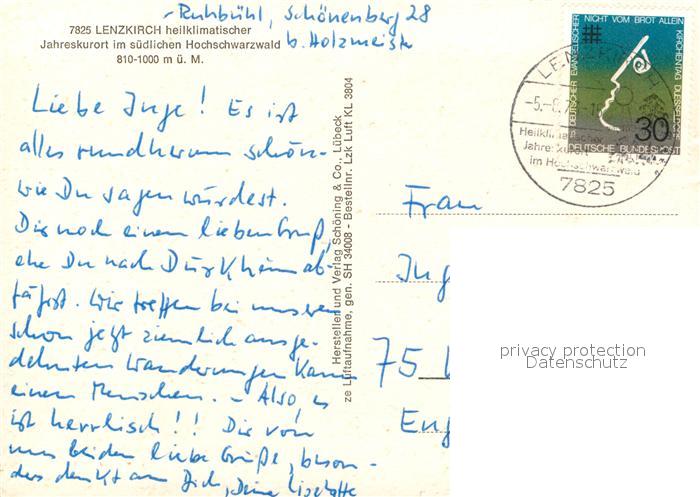 Ruhbühl, Schönenberg 28
b. Holzmeister
7825 LENZKIRCH heilklimatischer
Jahreskurort im südlichen Hochschwarzwald
810-1000 m ü. M.
Liebe Inge! Es ist
alles rundherum schön -
wie Du sagen würdest.
Dir noch einen lieben Gruß,
ehe Du nach Dürkheim ab-
fährst. Wir treffen bei unseren
schon jetzt ziemlich ausge-
dehnten Wanderungen kaum
einen Menschen. - Also, es
ist herrlich!! Dir von
uns beiden liebe Grüße, beson-
ders denkt an Dich, Deine Liselotte
Herstellen und Verlag Schöning & Co., Lübeck
ze Luftaufnahme, gen. SH 34008 - Bestellnr. Lzk Luft KL 3804
NICHT VOM BROT ALLEIN
DEUTSCHER EVANGELISCHER
KIRCHENTAG DÜSSELDORF
30
DEUTSCHE BUNDESPOST
LENZKIRCH
-5.-8.
Heilklimatischer
Jahreskurort
im Hochschwarzwald
7825
Frau
Ing
75
Eng
privacy protection
Datenschutz